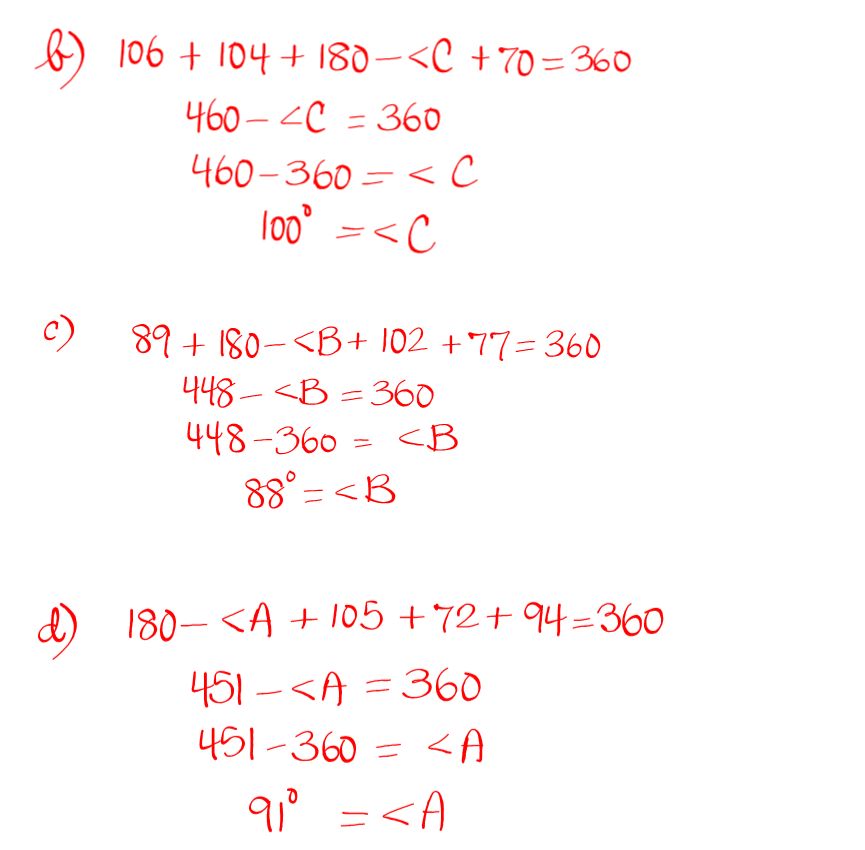 b) 106 + 104 + 180 - <C + 70 = 360
460 - <C = 360
460 - 360 = < C
100° = < C
c) 89 + 180 - <B + 102 + 77 = 360
448 - <B = 360
448 - 360 = <B
88° = <B
d) 180 - <A + 105 + 72 + 94 = 360
451 - <A = 360
451 - 360 = <A
91° = <A